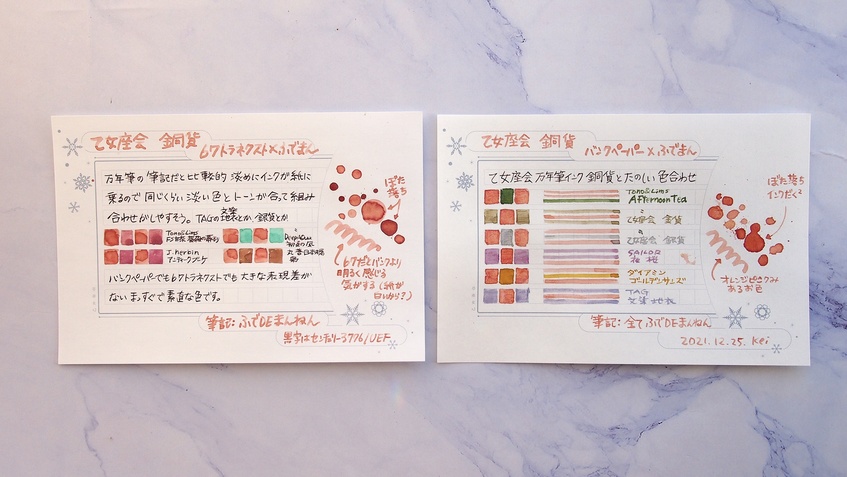 乙女座会 銅貨
6ワトラネクスト×ふでまん
万年筆の筆記だと比較的淡めにインクが紙に
乗るので同じくらい淡い色とトーンが合って組み
合わせがしやすそう。TAGの文葉地衣とか、銀貨とか
Tono&Lims
J.herbin
アンティークワンゲ
バンクペーパーでも6ワトラネクストでも大きな表現差が
ないまっすぐで素直な色です。
ぼた
落ち
6ワだとバンクより
明るく感じる
気がする(紙が
白いから?)
筆記:ふでDEまんねん
黒字はセンチュリー3776/UEF
乙女座会 銅貨
バンクペーパー×ふでまん
乙女座会万年筆インク 銅貨とたのしい色合わせ
Tono&Lims
Afternoon Tea
乙女座会 金貨
乙女座会 銀貨
SAILOR
夜桜
ダイアミン
ゴールデンサンズ
TAG
文葉地衣
ぼた落ち
インクだく2
オレンジピンクみ
あるお色
筆記:全てふでDEまんねん
2021.12.25. kei